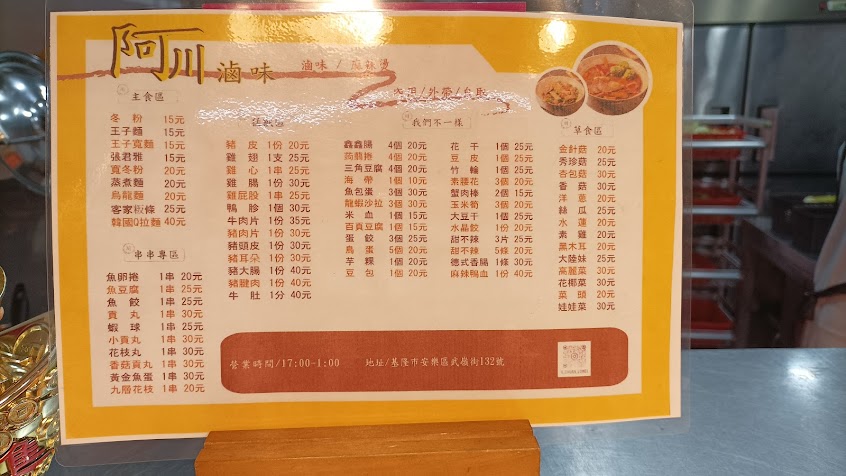 阿川滷味
滷味 / 麻辣燙
/外帶/自取
主食區
冬粉 15元
王子麵 15元
王子寬麵 15元
張君雅 15元
寬冬粉 20元
蒸煮麵 20元
烏龍麵 20元
客家粄條 25元
韓國Q拉麵 40元
串串專區
魚卵捲 1串 20元
魚豆腐 1串 20元
魚餃 1串 25元
貢丸 1串 30元
蝦球 1串 25元
小貢丸 1串 30元
花枝丸 1串 30元
香菇貢丸 1串 30元
黃金魚蛋 1串 30元
九層花枝 1串 20元
豬皮 1份 20元
雞翅 1支 25元
雞心 1串 25元
雞腸 1份 30元
雞屁股 1串 25元
鴨胗 1個 30元
牛肉片 1份 35元
豬肉片 1份 30元
豬頭皮 1份 30元
豬耳朵 1份 30元
豬大腸 1份 40元
豬腱肉 1份 40元
牛肚 1分 40元
我們不一樣
鑫鑫腸 4個 20元
蒟蒻捲 4個 20元
三角豆腐 4個 20元
海帶 1個 10元
魚包蛋 3個 30元
龍蝦沙拉 3個 30元
米血 1個 15元
百頁豆腐 1個 15元
蛋餃 3個 25元
鳥蛋 5個 20元
芋粿 1個 20元
豆包 1個 20元
花干 1個 25元
豆皮 1個 25元
竹輪 1個 25元
素腰花 3個 20元
蟹肉棒 2個 15元
玉米筍 3個 20元
大豆干 1個 25元
水晶餃 1份 20元
甜不辣 3片 25元
甜不辣 5條 20元
德式香腸 1條 30元
麻辣鴨血 1份 40元
草食區
金針菇 20元
秀珍菇 25元
杏包菇 30元
香菇 30元
洋蔥 20元
絲瓜 25元
水蓮 20元
素雞 20元
黑木耳 20元
大陸妹 25元
高麗菜 30元
花椰菜 30元
菜頭 20元
娃娃菜 30元
營業時間/17:00-1:00 地址/基隆市安樂區武嶺街132號